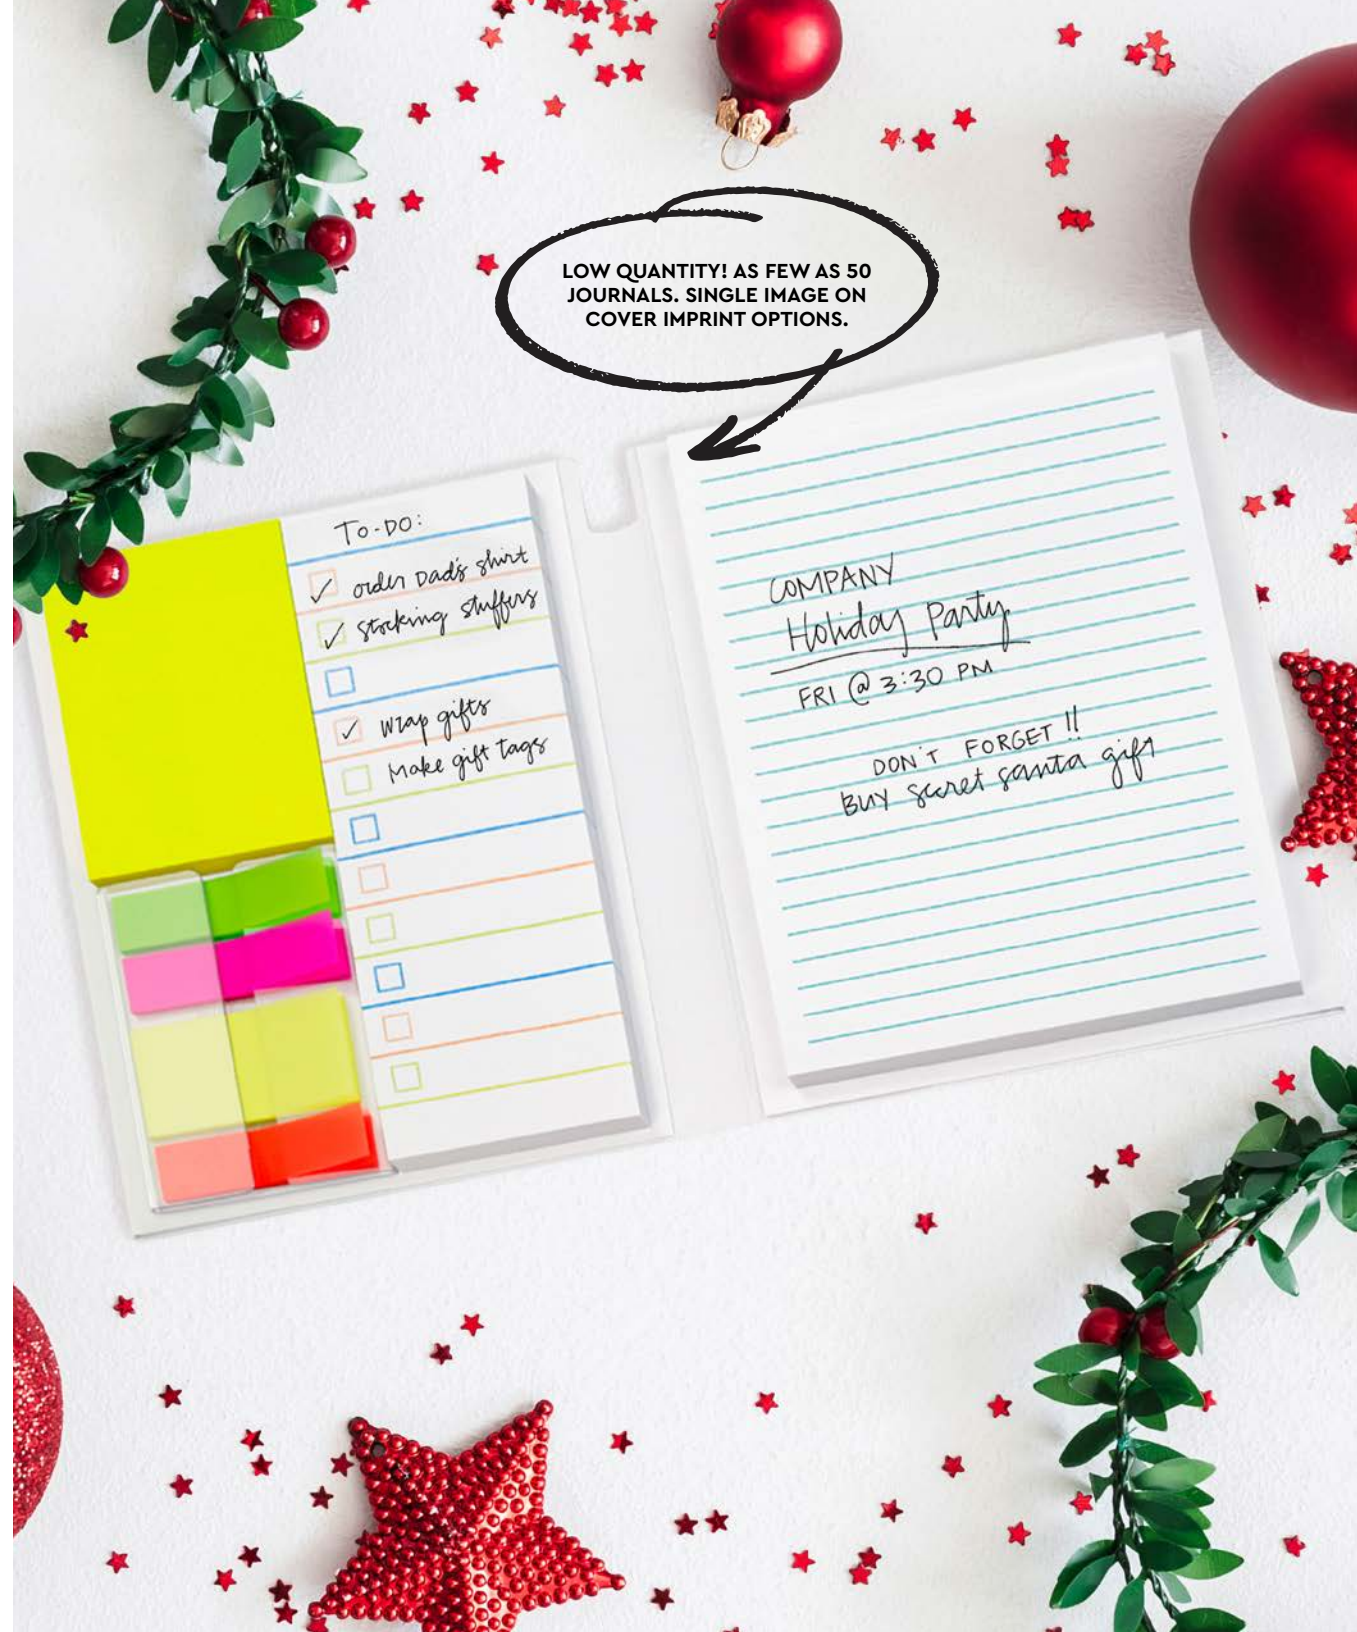 LOW QUANTITY! AS FEW AS 50
JOURNALS. SINGLE IMAGE ON
COVER IMPRINT OPTIONS.
TO-DO:
order Dad's shirt
stocking stuffers
Wrap gifts
Make gift tags
COMPANY
Holiday Party
FRI @ 3:30 PM
DON'T FORGET!!
BUY secret santa gift